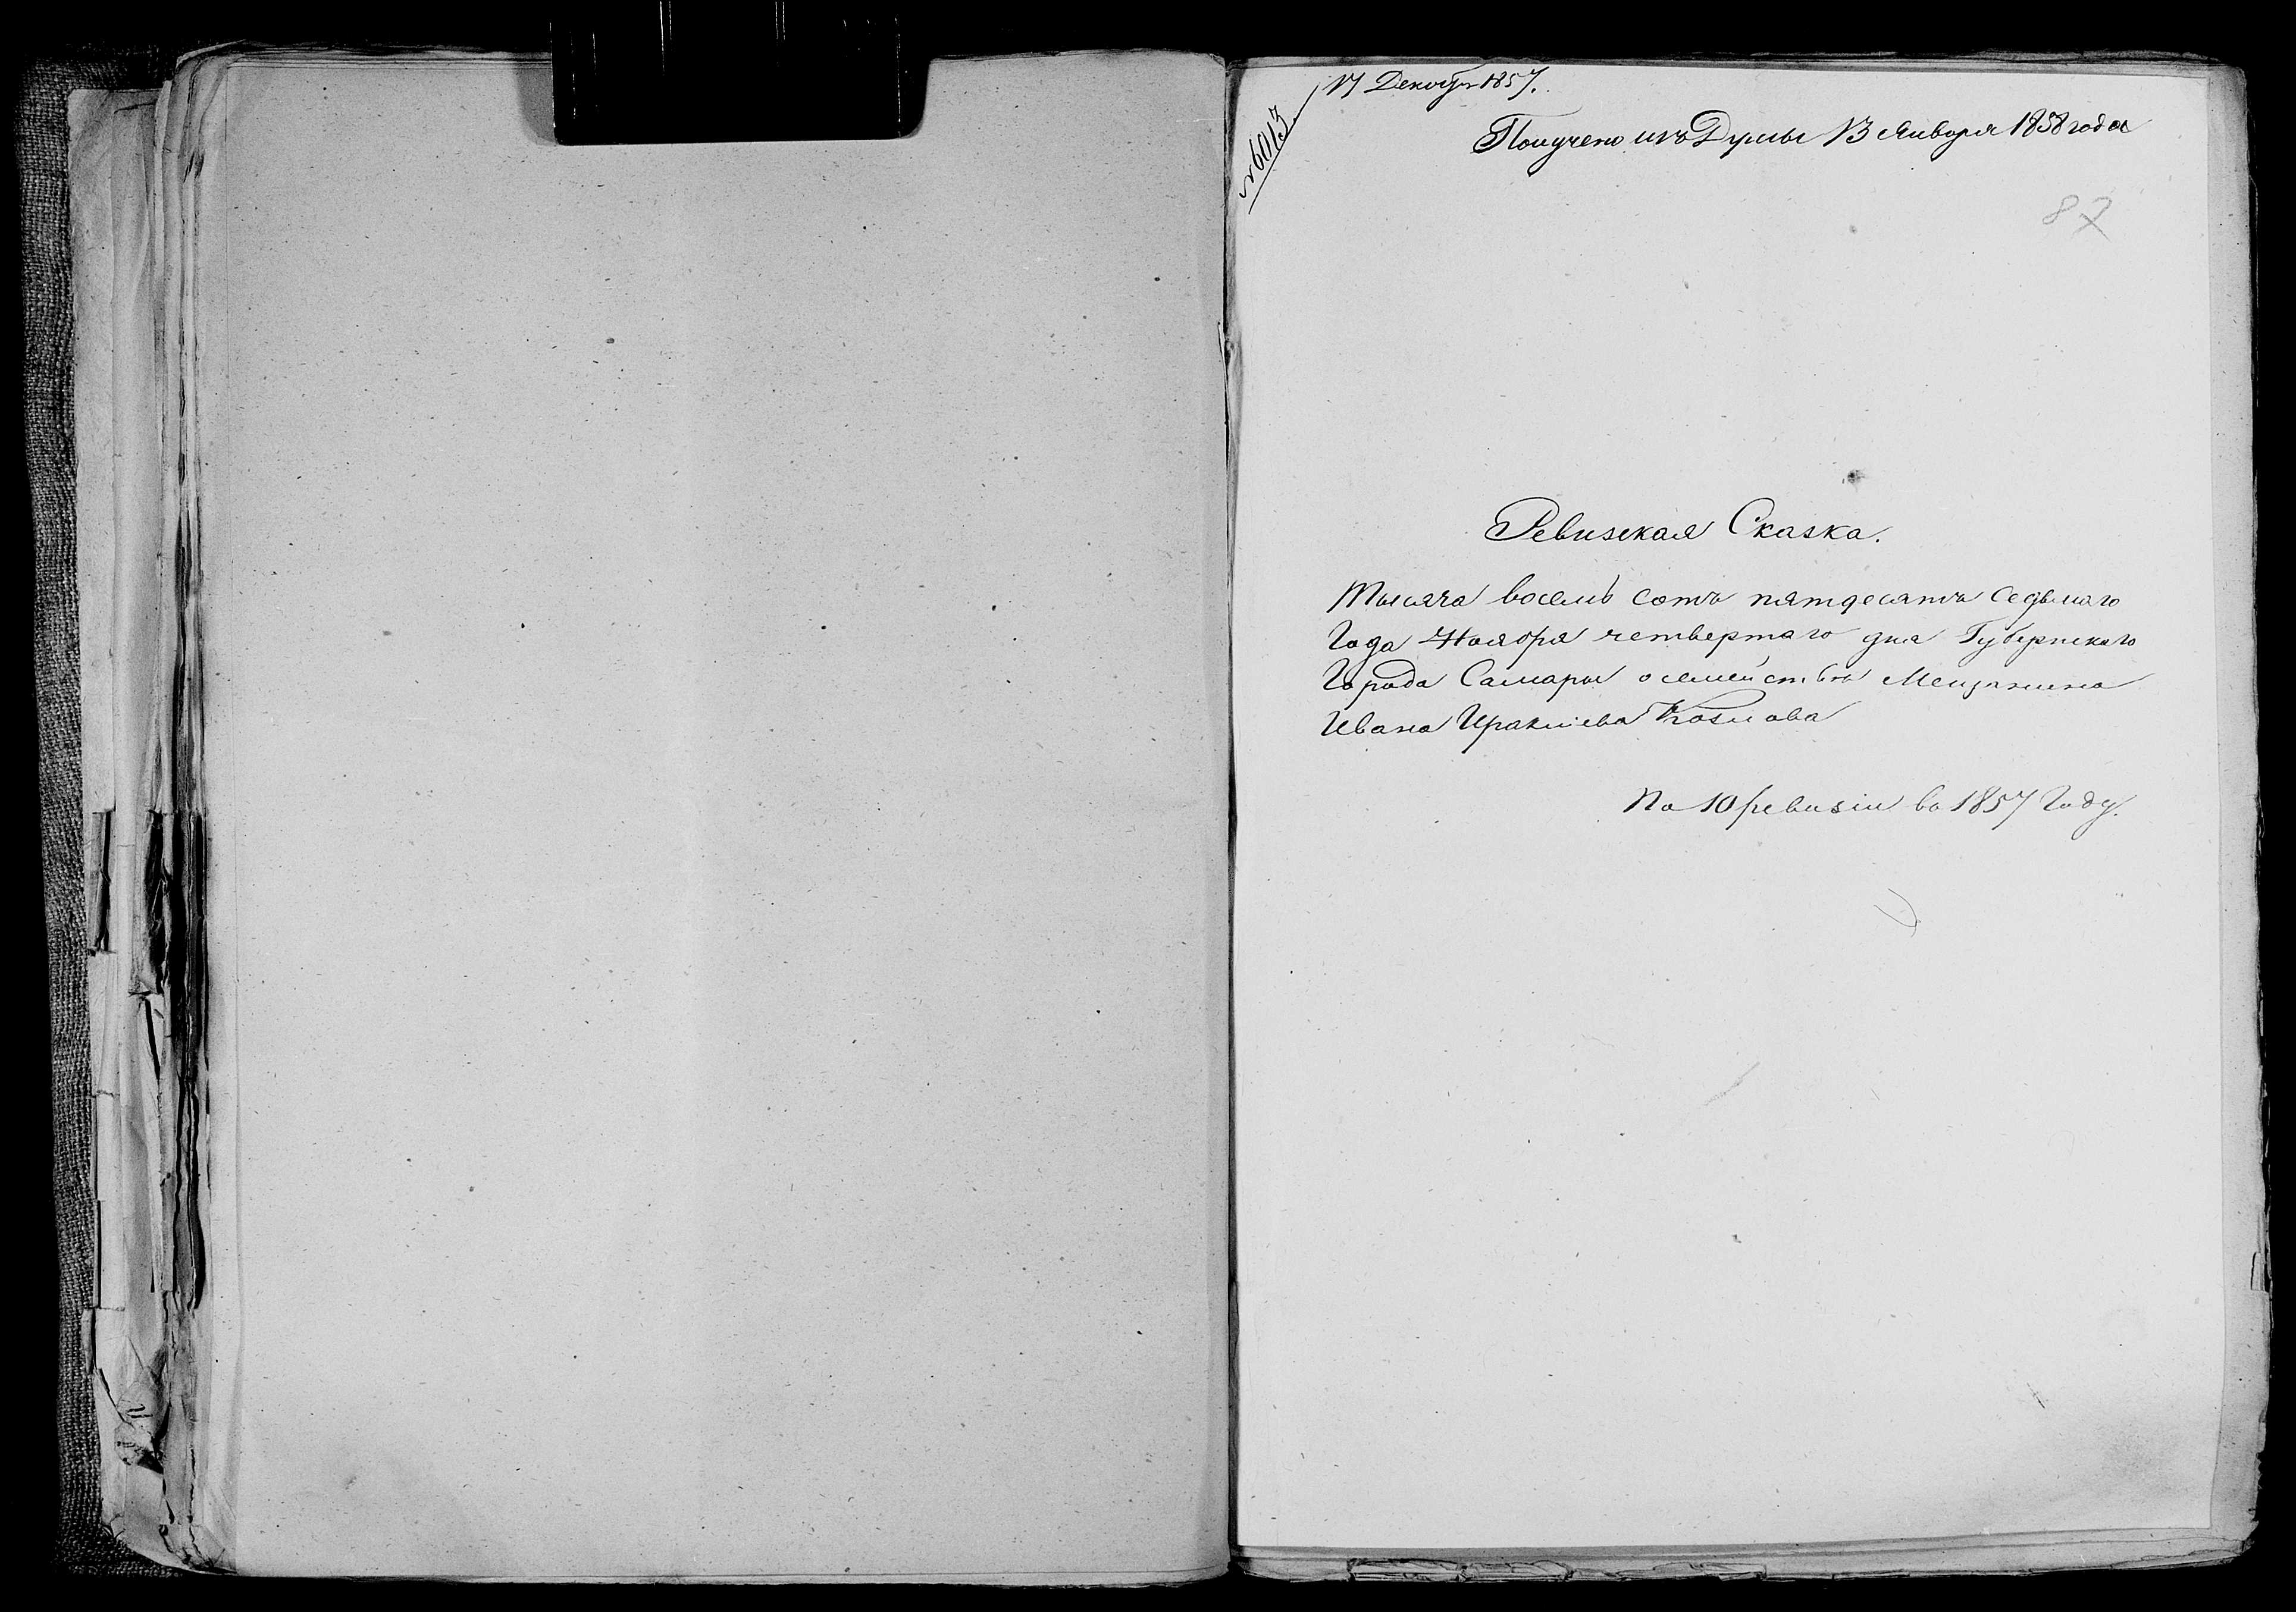 № 6013
17 Декабря 1857.
Получено изъ Думы 13 Января 1858 года
87
Ревизская Сказка.
Тысяча восемь сотъ пятдесятъ седьмаго
Года Ноября четвертаго дня Губернскаго
Города Самары о семействѣ Мещанина
Ивана Ираклiева Козлова
По 10 ревизiи въ 1857 Году.